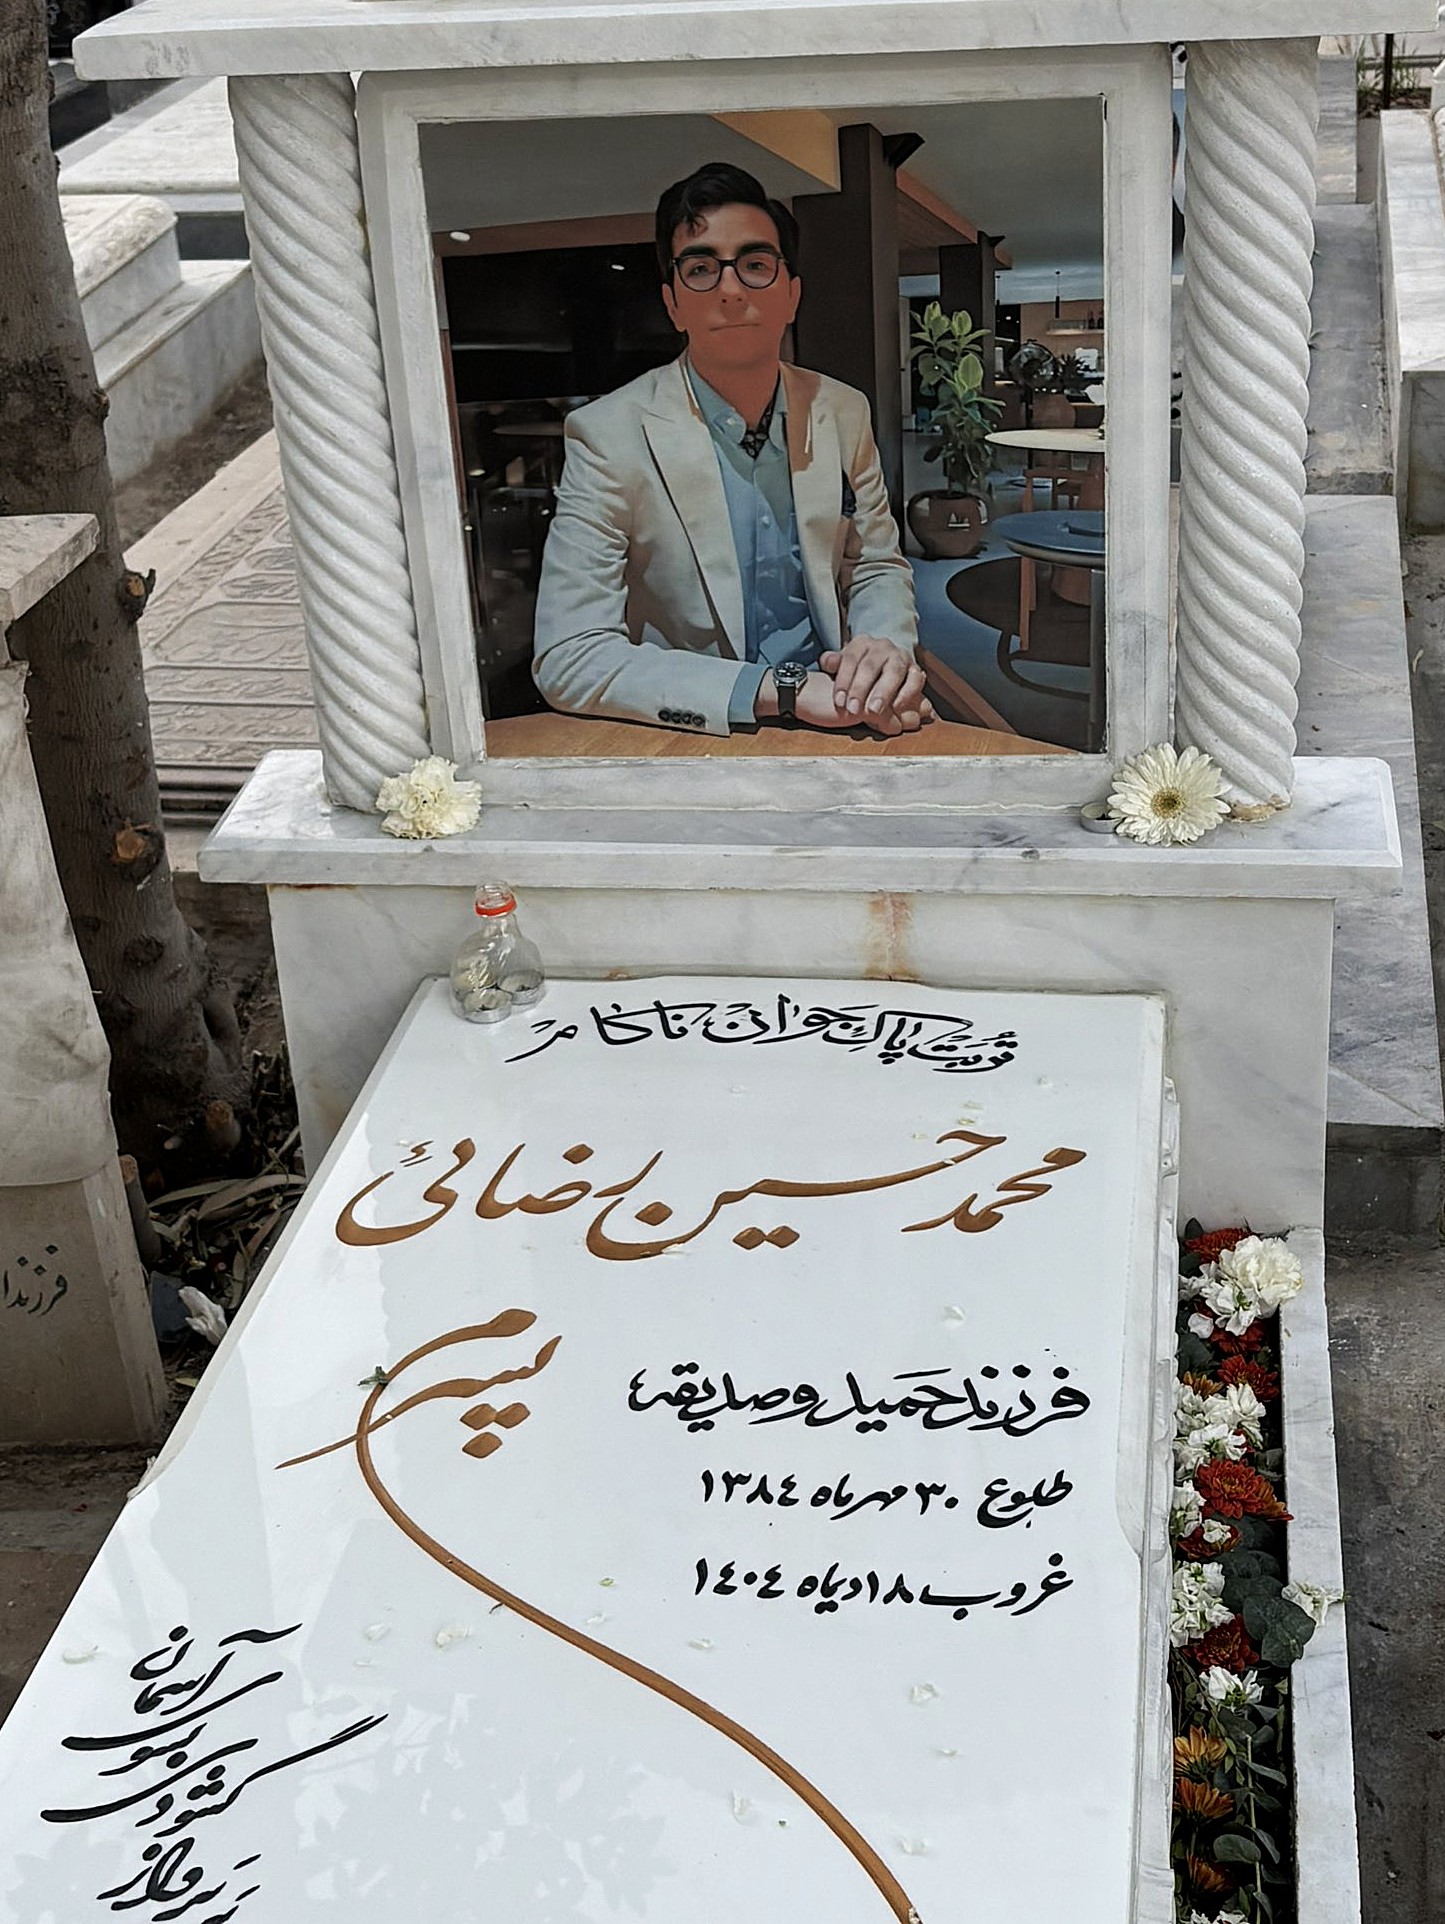 تُربت پاکِ جوان ناکام
محمد حسین رضائی
پسرم
فرزند حمید و صدیقه
طلوع ۳۰ مهرماه ۱۳۸٤
غروب ۱۸ دیماه ۱٤۰٤
آسمان
بسوی
گشودی
پرواز
فرزند